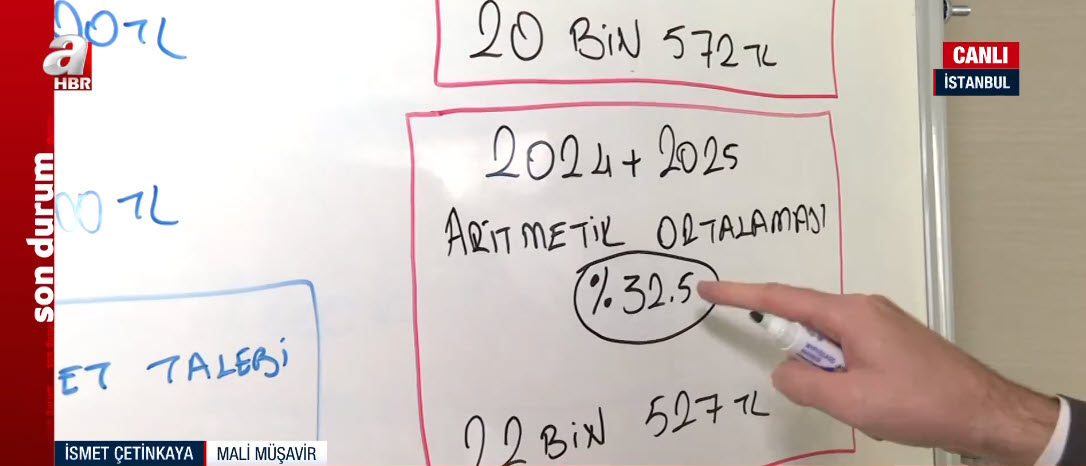 00 TL
a
HBR
20 BİN 572 TL
CANLI
İSTANBUL
2024 + 2025
ARİTMETİK ORTALAMASI
%32.5
00 TL
son durum
ET TALEBİ
22 BİN 527 TL
İSMET ÇETİNKAYA
MALİ MÜŞAVİR